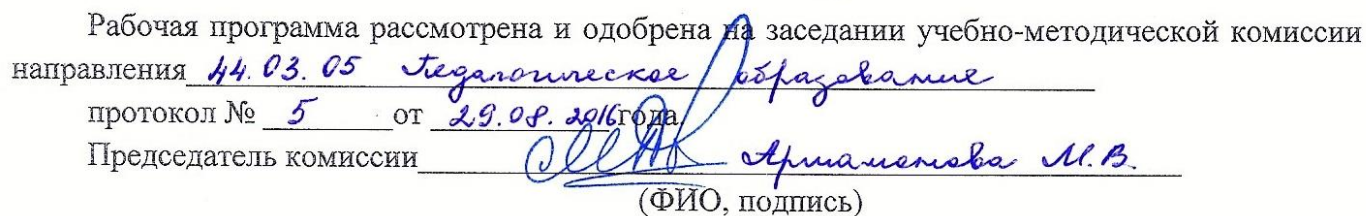 Рабочая программа рассмотрена и одобрена на заседании учебно-методической комиссии
направления 44.03.05 Педагогическое образование
протокол № 5 от 29.08.2016 года
Председатель комиссии М.В.
(ФИО, подпись)